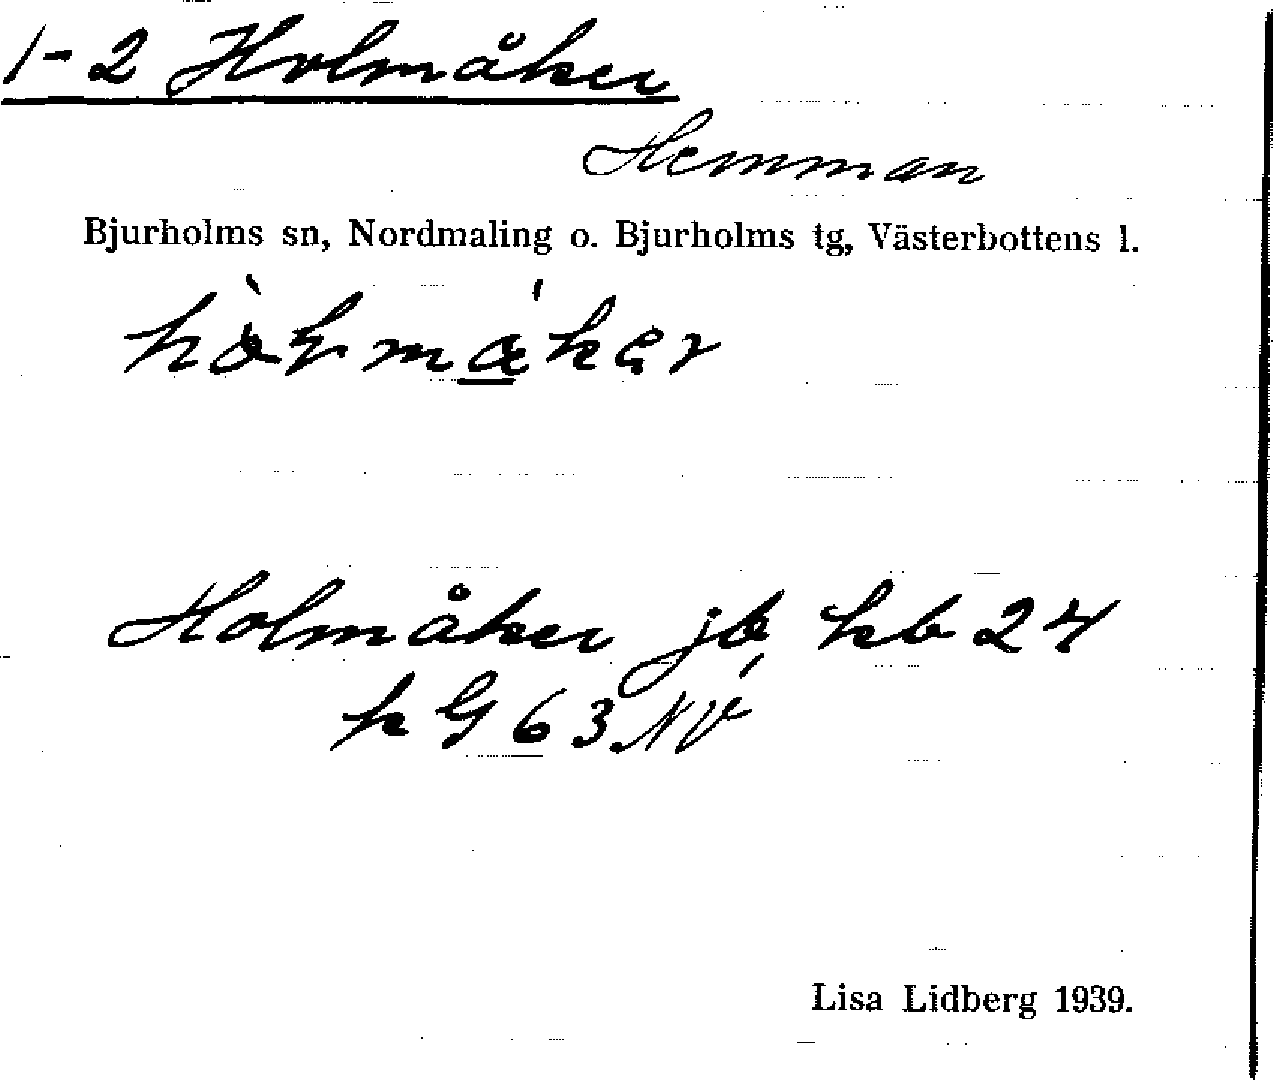 1-2 Holmåker
Hemman
Bjurholms sn, Nordmaling o. Bjurholms tg, Västerbottens l.
Holmåker jb, kb 24
k G 63 NV
Lisa Lidberg 1939.